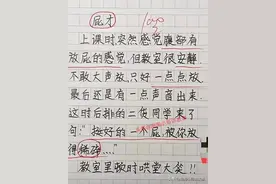 屁才
100
上课时突然感觉腹部有
放屁的感觉,但教室很安静
不敢大声放,只好一点点放
最后还是有一点声音出来.
这时后排的二货同学来了
句:"挺好的一个屁,被你放
得稀碎..."
教室里顿时哄堂大笑!!